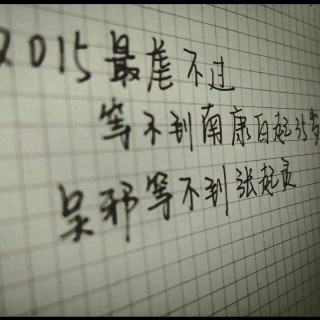 2015最虐不过
等不到南康白起35岁
吴邪等不到张起灵